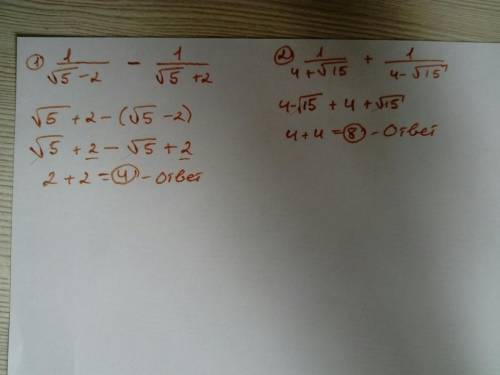 1) 1/(√5 - 2) - 1/(√5 + 2)
√5 + 2 - (√5 - 2)
√5 + 2 - √5 + 2
2 + 2 = 4 - ответ
2) 1/(4 + √15) + 1/(4 - √15)
4 - √15 + 4 + √15
4 + 4 = 8 - ответ